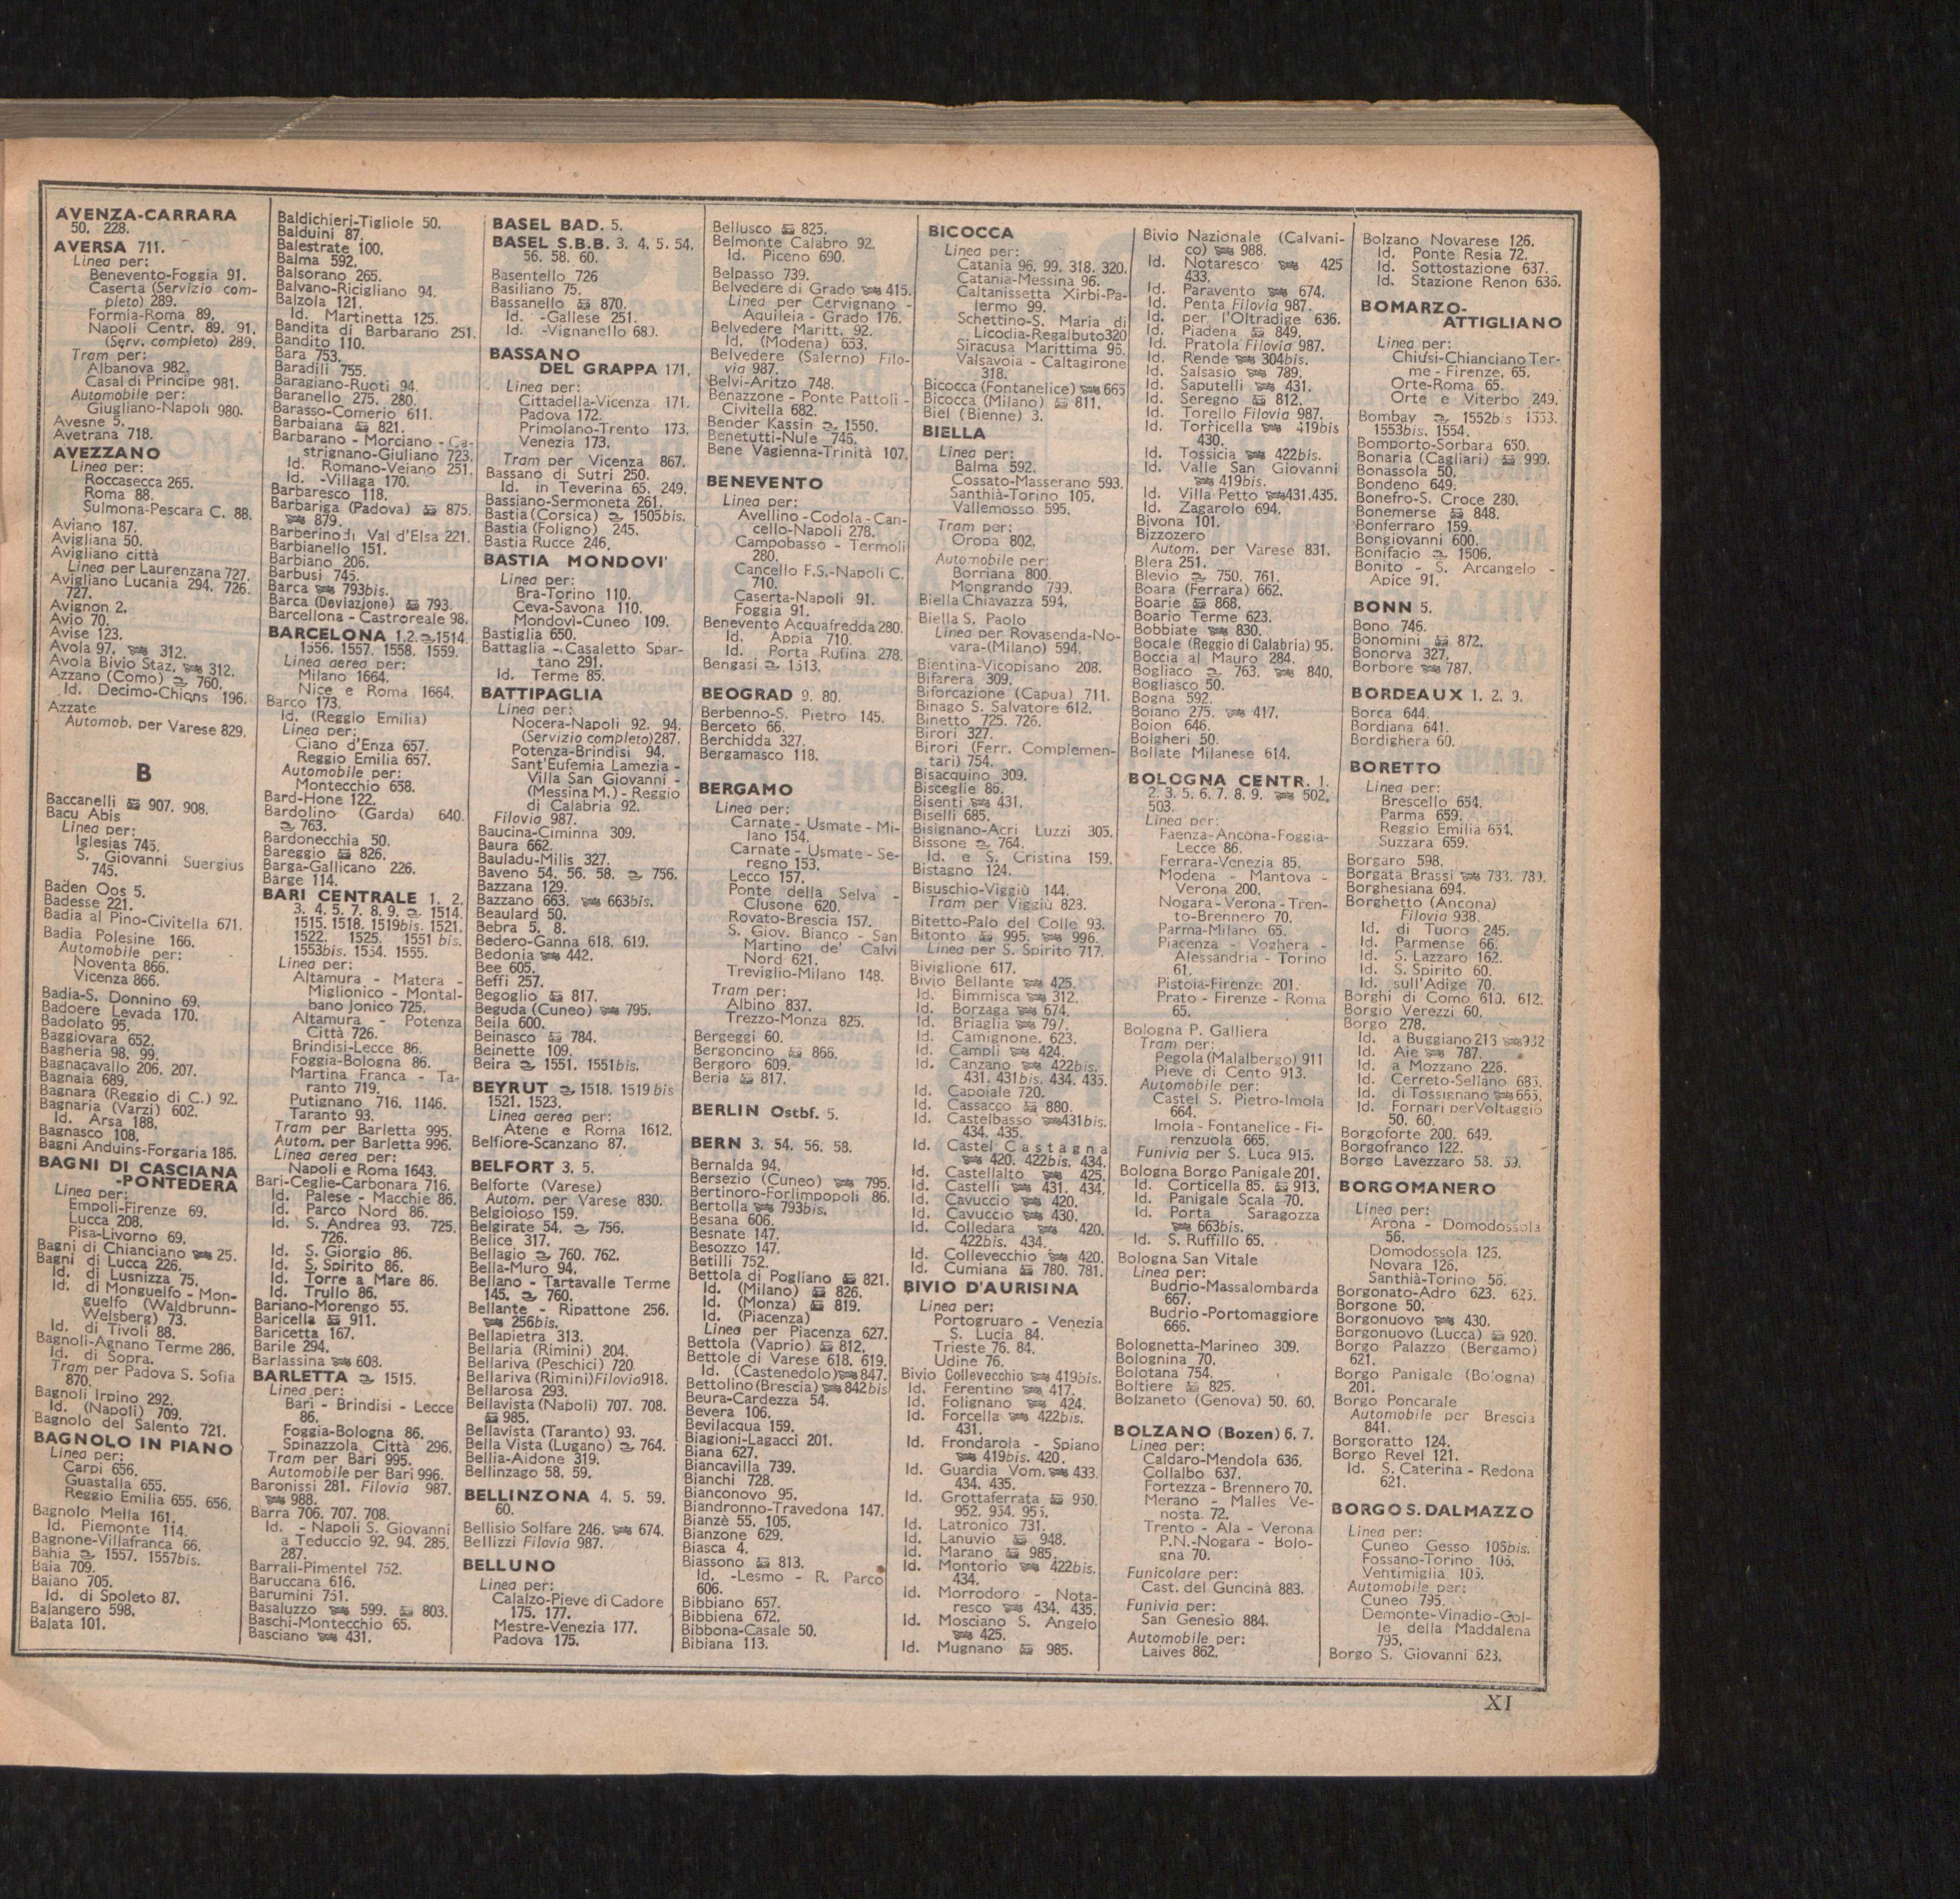 AVENZA-CARRARA
50. 228.
AVERSA 711.
Linea per:
Benevento-Foggia 91.
Caserta (Servizio com-
pleto) 289.
Formia-Roma 89.
Napoli Centr. 89. 91.
(Serv. completo) 289.
Tram per:
Albanova 982.
Casal di Principe 981.
Automobile per:
Giugliano-Napoli 980.
Avesne 5.
Avetrana 718.
AVEZZANO
Linea per:
Roccasecca 265.
Roma 88.
Sulmona-Pescara C. 88.
Aviano 187.
Avigliana 50.
Avigliano città
Linea per Laurenzana 727.
Avigliano Lucania 294. 726.
727.
Avignon 2.
Avio 70.
Avise 123.
Avola 97. 312.
Avola Bivio Staz. 312.
Azzano (Como) 760.
Id. Decimo-Chions 196.
Azzate
Automob. per Varese 829.
B
Baccanelli 907. 908.
Bacu Abis
Linea per:
Iglesias 745.
S. Giovanni Suergius
745.
Baden Oos 5.
Badesse 221.
Badia al Pino-Civitella 671.
Badia Polesine 166.
Automobile per:
Noventa 866.
Vicenza 866.
Badia-S. Donnino 69.
Badoere Levada 170.
Badolato 95.
Baggiovara 652.
Bagheria 98. 99.
Bagnacavallo 206. 207.
Bagnaia 689.
Bagnara (Reggio di C.) 92.
Bagnaria (Varzi) 602.
Id. Arsa 188.
Bagnasco 108.
Bagni Anduins-Forgaria 186.
BAGNI DI CASCIANA
-PONTEDERA
Linea per:
Empoli-Firenze 69.
Lucca 208.
Pisa-Livorno 69.
Bagni di Chianciano 25.
Bagni di Lucca 226.
Id. di Lusnizza 75.
Id. di Monguelfo - Mon-
guelfo (Waldbrunn-
Welsberg) 73.
Id. di Tivoli 88.
Bagnoli-Agnano Terme 286.
Id. di Sopra.
Tram per Padova S. Sofia
870.
Bagnoli Irpino 292.
Id. (Napoli) 709.
Bagnolo del Salento 721.
BAGNOLO IN PIANO
Linea per:
Carpi 656.
Guastalla 655.
Reggio Emilia 655. 656.
Bagnolo Mella 161.
Id. Piemonte 114.
Bagnone-Villafranca 66.
Bahia 1557. 1557bis.
Baia 709.
Baiano 705.
Id. di Spoleto 87.
Balangero 598.
Balata 101.
Baldichieri-Tigliole 50.
Balduini 87.
Balestrate 100.
Balma 592.
Balsorano 265.
Balvano-Ricigliano 94.
Balzola 121.
Id. Martinetta 125.
Bandita di Barbarano 251.
Bandito 110.
Bara 753.
Baradili 755.
Baragiano-Ruoti 94.
Baranello 275. 280.
Barasso-Comerio 611.
Barbaiana 821.
Barbarano - Morciano - Ca-
strignano-Giuliano 723.
Id. Romano-Veiano 251.
Id. -Villaga 170.
Barbaresco 118.
Barbariga (Padova) 875.
879.
Barberino di Val d'Elsa 221.
Barbianello 151.
Barbiano 206.
Barbusi 745.
Barca 793bis.
Barca (Deviazione) 793.
Barcellona - Castroreale 98.
BARCELONA 1.2. 1514.
1556. 1557. 1558. 1559.
Linea aerea per:
Milano 1664.
Nice e Roma 1664.
Barco 173.
Id. (Reggio Emilia)
Linea per:
Ciano d'Enza 657.
Reggio Emilia 657.
Automobile per:
Montecchio 658.
Bard-Hone 122.
Bardolino (Garda) 640.
763.
Bardonecchia 50.
Bareggio 826.
Barga-Gallicano 226.
Barge 114.
BARI CENTRALE 1. 2.
3. 4. 5. 7. 8. 9. 1514.
1515. 1518. 1519bis. 1521.
1522. 1525. 1551 bis.
1553bis. 1554. 1555.
Linea per:
Altamura - Matera -
Miglionico - Montal-
bano Jonico 725.
Altamura - Potenza
Città 726.
Brindisi-Lecce 86.
Foggia-Bologna 86.
Martina Franca - Ta-
ranto 719.
Putignano 716. 1146.
Taranto 93.
Tram per Barletta 995.
Autom. per Barletta 996.
Linea aerea per:
Napoli e Roma 1643.
Bari-Ceglie-Carbonara 716.
Id. Palese - Macchie 86.
Id. Parco Nord 86.
Id. S. Andrea 93. 725.
726.
Id. S. Giorgio 86.
Id. S. Spirito 86.
Id. Torre a Mare 86.
Id. Trullo 86.
Bariano-Morengo 55.
Baricella 911.
Baricetta 167.
Barile 294.
Barlassina 608.
BARLETTA 1515.
Linea per:
Bari - Brindisi - Lecce
86.
Foggia-Bologna 86.
Spinazzola Città 296.
Tram per Bari 995.
Automobile per Bari 996.
Baronissi 281. Filovia 987.
988.
Barra 706. 707. 708.
Id. - Napoli S. Giovanni
a Teduccio 92. 94. 285.
287.
Barrali-Pimentel 752.
Baruccana 616.
Barumini 751.
Basaluzzo 599. 803.
Baschi-Montecchio 65.
Basciano 431.
BASEL BAD. 5.
BASEL S.B.B. 3. 4. 5. 54.
56. 58. 60.
Basentello 726
Basiliano 75.
Bassanello 870.
Id. -Gallese 251.
Id. -Vignanello 689.
BASSANO
DEL GRAPPA 171.
Linea per:
Cittadella-Vicenza 171.
Padova 172.
Primolano-Trento 173.
Venezia 173.
Tram per Vicenza 867.
Bassano di Sutri 250.
Id. in Teverina 65. 249.
Bassiano-Sermoneta 261.
Bastia (Corsica) 1505bis.
Bastia (Foligno) 245.
Bastia Rucce 246.
BASTIA MONDOVI'
Linea per:
Bra-Torino 110.
Ceva-Savona 110.
Mondovì-Cuneo 109.
Bastiglia 650.
Battaglia - Casaletto Spar-
tano 291.
Id. Terme 85.
BATTIPAGLIA
Linea per:
Nocera-Napoli 92. 94.
(Servizio completo)287.
Potenza-Brindisi 94.
Sant'Eufemia Lamezia -
Villa San Giovanni -
(Messina M.) - Reggio
di Calabria 92.
Filovia 987.
Baucina-Ciminna 309.
Baura 662.
Bauladu-Milis 327.
Baveno 54. 56. 58. 756.
Bazzana 129.
Bazzano 663. 663bis.
Beaulard 50.
Bebra 5. 8.
Bedero-Ganna 618. 619.
Bedonia 442.
Bee 605.
Beffi 257.
Begoglio 817.
Beguda (Cuneo) 795.
Beila 600.
Beinasco 784.
Beinette 109.
Beira 1551. 1551bis.
BEYRUT 1518. 1519 bis
1521. 1523.
Linea aerea per:
Atene e Roma 1612.
Belfiore-Scanzano 87.
BELFORT 3. 5.
Belforte (Varese)
Autom. per Varese 830.
Belgioioso 159.
Belgirate 54. 756.
Belice 317.
Bellagio 760. 762.
Bella-Muro 94.
Bellano - Tartavalle Terme
145. 760.
Bellante - Ripattone 256.
256bis.
Bellapietra 313.
Bellaria (Rimini) 204.
Bellariva (Peschici) 720.
Bellariva (Rimini)Filovia918.
Bellarosa 293.
Bellavista (Napoli) 707. 708.
985.
Bellavista (Taranto) 93.
Bella Vista (Lugano) 764.
Bellia-Aidone 319.
Bellinzago 58. 59.
BELLINZONA 4. 5. 59.
60.
Bellisio Solfare 246. 674.
Bellizzi Filovia 987.
BELLUNO
Linea per:
Calalzo-Pieve di Cadore
175. 177.
Mestre-Venezia 177.
Padova 175.
Bellusco 825.
Belmonte Calabro 92.
Id. Piceno 690.
Belpasso 739.
Belvedere di Grado 415.
Linea per Cervignano -
Aquileia - Grado 176.
Belvedere Maritt. 92.
Id. (Modena) 653.
Belvedere (Salerno) Filo-
via 987.
Belvi-Aritzo 748.
Benazzone - Ponte Pattoli -
Civitella 682.
Bender Kassin 1550.
Benetutti-Nule 746.
Bene Vagienna-Trinità 107.
BENEVENTO
Linea per:
Avellino-Codola-Can-
cello-Napoli 278.
Campobasso - Termoli
280.
Cancello F.S.-Napoli C.
710.
Caserta-Napoli 91.
Foggia 91.
Benevento Acquafredda 280.
Id. Appia 710.
Id. Porta Rufina 278.
Bengasi 1513.
BEOGRAD 9. 80.
Berbenno-S. Pietro 145.
Berceto 66.
Berchidda 327.
Bergamasco 118.
BERGAMO
Linea per:
Carnate - Usmate - Mi-
lano 154.
Carnate - Usmate - Se-
regno 153.
Lecco 157.
Ponte della Selva -
Clusone 620.
Rovato-Brescia 157.
S. Giov. Bianco - San
Martino de' Calvi
Nord 621.
Treviglio-Milano 148.
Tram per:
Albino 837.
Trezzo-Monza 825.
Bergeggi 60.
Bergoncino 866.
Bergoro 609.
Beria 817.
BERLIN Ostbf. 5.
BERN 3. 54. 56. 58.
Bernalda 94.
Bersezio (Cuneo) 795.
Bertinoro-Forlimpopoli 86.
Bertolla 793bis.
Besana 606.
Besnate 147.
Besozzo 147.
Betilli 752.
Bettola di Pogliano 821.
Id. (Milano) 826.
Id. (Monza) 819.
Id. (Piacenza)
Linea per Piacenza 627.
Bettola (Vaprio) 812.
Bettole di Varese 618. 619.
Id. (Castenedolo) 847.
Bettolino (Brescia) 842bis
Beura-Cardezza 54.
Bevera 106.
Bevilacqua 159.
Biagioni-Lagacci 201.
Biana 627.
Biancavilla 739.
Bianchi 728.
Bianconovo 95.
Biandronno-Travedona 147.
Bianzè 55. 105.
Bianzone 629.
Biasca 4.
Biassono 813.
Id. -Lesmo - R. Parco
606.
Bibbiano 657.
Bibbiena 672.
Bibbona-Casale 50.
Bibiana 113.
BICOCCA
Linea per:
Catania 96. 99. 318. 320.
Catania-Messina 96.
Caltanissetta Xirbi-Pa-
lermo 99.
Schettino-S. Maria di
Licodia-Regalbuto320
Siracusa Marittima 96.
Valsavoia - Caltagirone
318.
Bicocca (Fontanelice) 665
Bicocca (Milano) 811.
Biel (Bienne) 3.
BIELLA
Linea per:
Balma 592.
Cossato-Masserano 593.
Santhià-Torino 105.
Vallemosso 595.
Tram per:
Oropa 802.
Automobile per:
Borriana 800.
Mongrando 799.
Biella Chiavazza 594.
Biella S. Paolo
Linea per Rovasenda-No-
vara-(Milano) 594.
Bientina-Vicopisano 208.
Bifarera 309.
Biforcazione (Capua) 711.
Binago S. Salvatore 612.
Binetto 725. 726.
Birori 327.
Birori (Ferr. Complemen-
tari) 754.
Bisacquino 309.
Bisceglie 86.
Bisenti 431.
Biselli 685.
Bisignano-Acri Luzzi 305.
Bissone 764.
Id. e S. Cristina 159.
Bistagno 124.
Bisuschio-Viggiù 144.
Tram per Viggiù 823.
Bitetto-Palo del Colle 93.
Bitonto 995. 996.
Linea per S. Spirito 717.
Biviglione 617.
Bivio Bellante 425.
Id. Bimmisca 312.
Id. Borzaga 674.
Id. Briaglia 797.
Id. Camignone. 623.
Id. Campli 424.
Id. Canzano 422bis.
431. 431bis. 434. 435.
Id. Capoiale 720.
Id. Cassacco 880.
Id. Castelbasso 431bis.
434. 435.
Id. Castel Castagna
420. 422bis. 434.
Id. Castellalto 425.
Id. Castelli 431. 434.
Id. Cavuccio 420.
Id. Cavuccio 430.
Id. Colledara 420.
422bis. 434.
Id. Collevecchio 420.
Id. Cumiana 780. 781.
BIVIO D'AURISINA
Linea per:
Portogruaro - Venezia
S. Lucia 84.
Trieste 76. 84.
Udine 76.
Bivio Collevecchio 419bis.
Id. Ferentino 417.
Id. Folignano 424.
Id. Forcella 422bis.
431.
Id. Frondarola - Spiano
419bis. 420.
Id. Guardia Vom. 433.
434. 435.
Id. Grottaferrata 950.
952. 954. 955.
Id. Latronico 731.
Id. Lanuvio 948.
Id. Marano 985.
Id. Montorio 422bis.
434.
Id. Morrodoro - Nota-
resco 434. 435.
Id. Mosciano S. Angelo
425.
Id. Mugnano 985.
Bivio Nazionale (Calvani-
co) 988.
Id. Notaresco 425
433.
Id. Paravento 674.
Id. Penta Filovia 987.
Id. per l'Oltradige 636.
Id. Piadena 849.
Id. Pratola Filovia 987.
Id. Rende 304bis.
Id. Salsasio 789.
Id. Saputelli 431.
Id. Seregno 812.
Id. Torello Filovia 987.
Id. Torricella 419bis
430.
Id. Tossicia 422bis.
Id. Valle San Giovanni
419bis.
Id. Villa Petto 431.435.
Id. Zagarolo 694.
Bivona 101.
Bizzozero
Autom. per Varese 831.
Blera 251.
Blevio 750. 761.
Boara (Ferrara) 662.
Boarie 868.
Boario Terme 623.
Bobbiate 830.
Bocale (Reggio di Calabria) 95.
Boccia al Mauro 284.
Bogliaco 763. 840.
Bogliasco 50.
Bogna 592.
Boiano 275. 417.
Boion 646.
Bolgheri 50.
Bollate Milanese 614.
BOLOGNA CENTR. 1.
2. 3. 5. 6. 7. 8. 9. 502.
503.
Linea per:
Faenza-Ancona-Foggia-
Lecce 86.
Ferrara-Venezia 85.
Modena - Mantova -
Verona 200.
Nogara-Verona-Tren-
to-Brennero 70.
Parma-Milano 65.
Piacenza - Voghera -
Alessandria - Torino
61.
Pistoia-Firenze 201.
Prato - Firenze - Roma
65.
Bologna P. Galliera
Tram per:
Pegola (Malalbergo) 911
Pieve di Cento 913.
Automobile per:
Castel S. Pietro-Imola
664.
Imola - Fontanelice - Fi-
renzuola 665.
Funivia per S. Luca 915.
Bologna Borgo Panigale 201.
Id. Corticella 85. 913.
Id. Panigale Scala 70.
Id. Porta Saragozza
663bis.
Id. S. Ruffillo 65.
Bologna San Vitale
Linea per:
Budrio-Massalombarda
667.
Budrio-Portomaggiore
666.
Bolognetta-Marineo 309.
Bolognina 70.
Bolotana 754.
Boltiere 825.
Bolzaneto (Genova) 50. 60.
BOLZANO (Bozen) 6. 7.
Linea per:
Caldaro-Mendola 636.
Collalbo 637.
Fortezza - Brennero 70.
Merano - Malles Ve-
nosta. 72.
Trento - Ala - Verona
P.N.-Nogara - Bolo-
gna 70.
Funicolare per:
Cast. del Guncinà 883.
Funivia per:
San Genesio 884.
Automobile per:
Laives 862.
Bolzano Novarese 126.
Id. Ponte Resia 72.
Id. Sottostazione 637.
Id. Stazione Renon 636.
BOMARZO-
ATTIGLIANO
Linea per:
Chiusi-Chianciano Ter-
me - Firenze. 65.
Orte-Roma 65.
Orte e Viterbo 249.
Bombay 1552bis 1553.
1553bis. 1554.
Bomporto-Sorbara 650.
Bonaria (Cagliari) 999.
Bonassola 50.
Bondeno 649.
Bonefro-S. Croce 280.
Bonemerse 848.
Bonferraro 159.
Bongiovanni 600.
Bonifacio 1506.
Bonito - S. Arcangelo -
Apice 91.
BONN 5.
Bono 746.
Bonomini 872.
Bonorva 327.
Borbore 787.
BORDEAUX 1. 2. 9.
Borca 644.
Bordiana 641.
Bordighera 60.
BORETTO
Linea per:
Brescello 654.
Parma 659.
Reggio Emilia 654.
Suzzara 659.
Borgaro 598.
Borgata Brassi 783. 789.
Borghesiana 694.
Borghetto (Ancona)
Filovia 938.
Id. di Tuoro 245.
Id. Parmense 66.
Id. S. Lazzaro 162.
Id. S. Spirito 60.
Id. sull'Adige 70.
Borghi di Como 610. 612.
Borgio Verezzi 60.
Borgo 278.
Id. a Buggiano 213 932
Id. Aie 787.
Id. a Mozzano 226.
Id. Cerreto-Sellano 685.
Id. di Tossignano 665.
Id. Fornari per Voltaggio
50. 60.
Borgoforte 200. 649.
Borgofranco 122.
Borgo Lavezzaro 58. 59.
BORGOMANERO
Linea per:
Arona - Domodossola
56.
Domodossola 126.
Novara 126.
Santhià-Torino 56.
Borgonato-Adro 623. 625.
Borgone 50.
Borgonuovo 430.
Borgonuovo (Lucca) 920.
Borgo Palazzo (Bergamo)
621.
Borgo Panigale (Bologna)
201.
Borgo Poncarale
Automobile per Brescia
841.
Borgoratto 124.
Borgo Revel 121.
Id. S. Caterina - Redona
621.
BORGO S. DALMAZZO
Linea per:
Cuneo Gesso 105bis.
Fossano-Torino 105.
Ventimiglia 105.
Automobile per:
Cuneo 795.
Demonte-Vinadio-Col-
le della Maddalena
795.
Borgo S. Giovanni 623.
XI